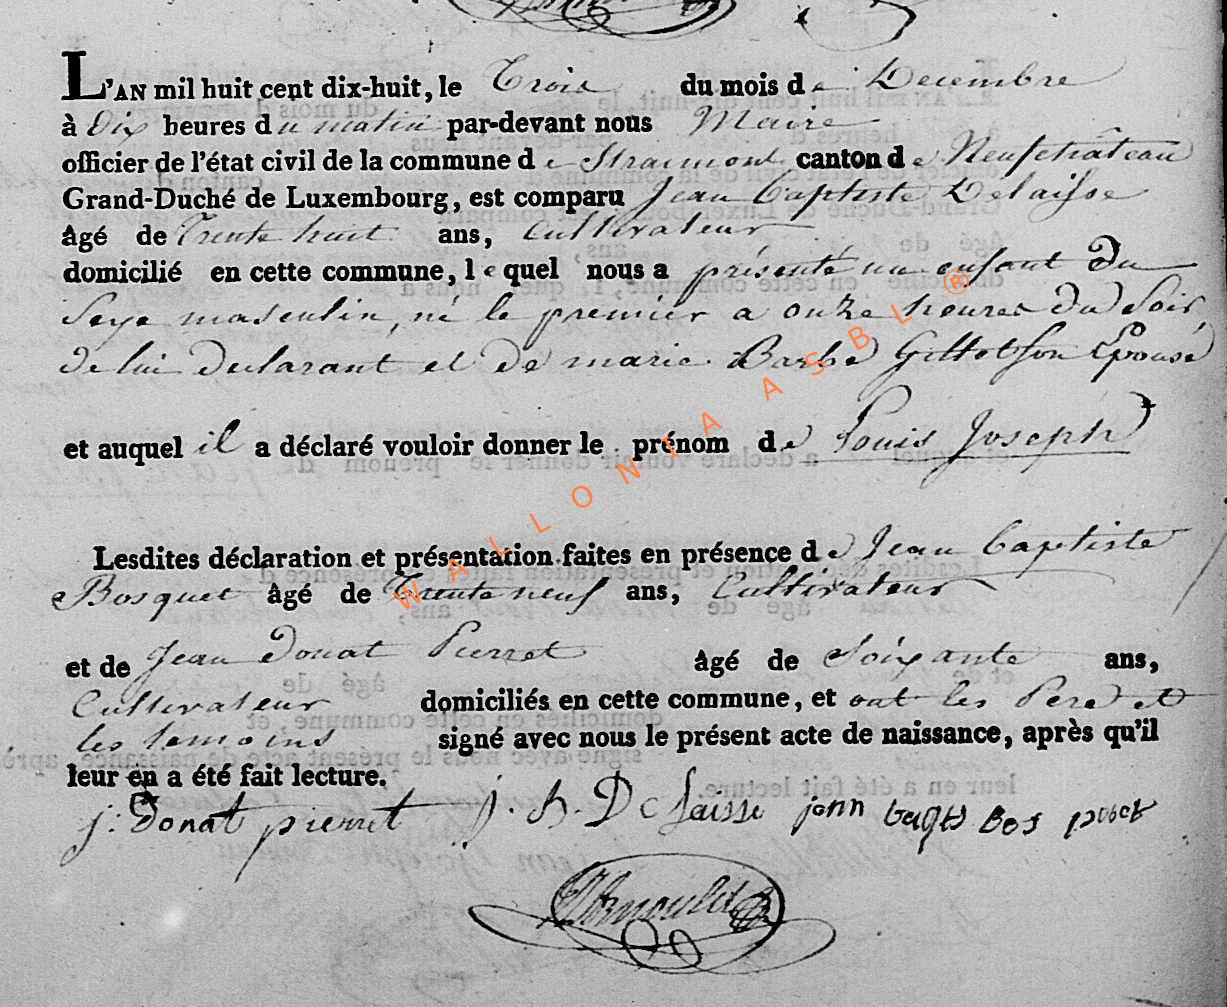 L'AN mil huit cent dix-huit, le Trois du mois de Decembre
à Dix heures du matin par-devant nous Maire
officier de l'état civil de la commune de Straimont canton de Neufchâteau
Grand-Duché de Luxembourg, est comparu Jean Baptiste Delaisse
âgé de Trente huit ans, Cultivateur
domicilié en cette commune, lequel nous a présenté un enfant Du
Sexe masculin, né le premier a onze heures Du Soir,
de lui Declarant et De marie Barbe Epouse
et auquel il a déclaré vouloir donner le prénom de Louis Joseph
Lesdites déclaration et présentation faites en présence de Jean Baptiste
Bosquet âgé de Trente neuf ans, Cultivateur
et de Jean Donat Pierret âgé de Soixante ans,
Cultivateur domiciliés en cette commune, et ont les Pere et
les temoins signé avec nous le présent acte de naissance, après qu'il
leur en a été fait lecture.
j: Donat pierret j. b. De laisse
WALLONIA ASBL ®